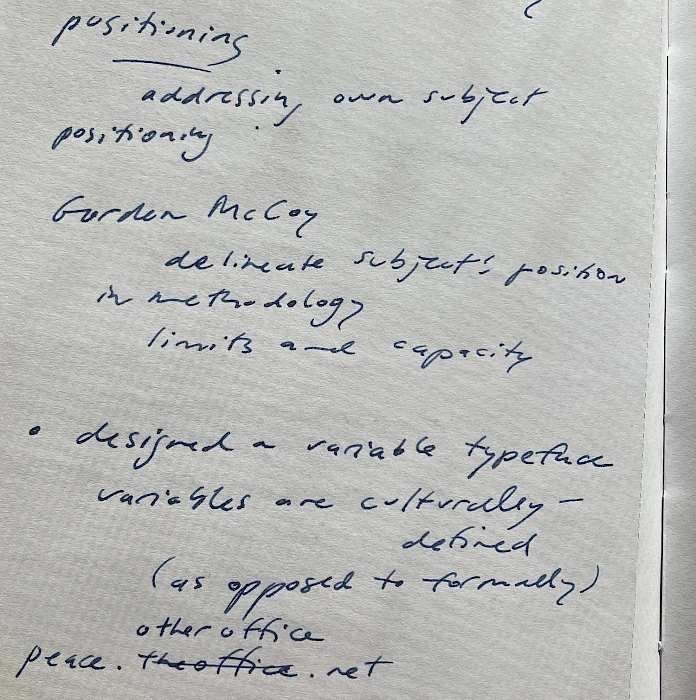 positioning
addressing own subject
positioning.
Gordon McCoy
delineate subject's position
in methodology
limits and capacity
• designed a variable typeface
variables are culturally-
defined
(as opposed to formally)
other office
peace. theoffice .net